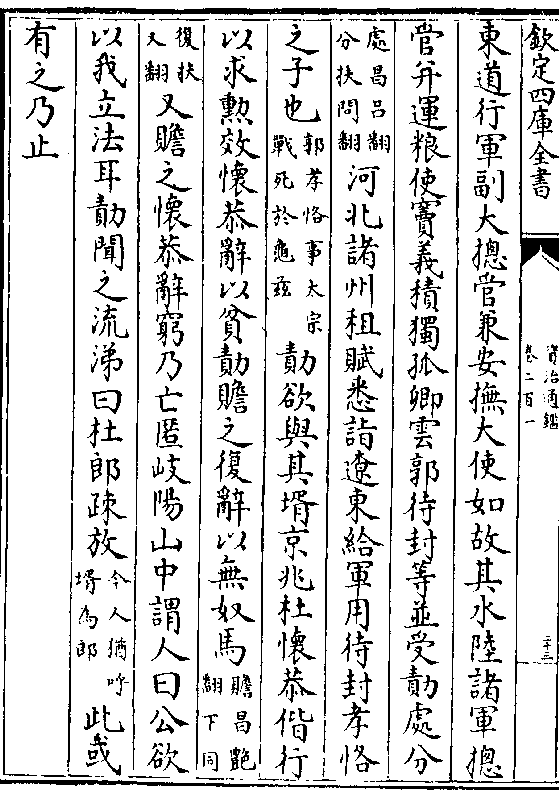 欽定四庫全書
資治通鑑
卷二百一
二十三
東道行軍副大總管兼安撫大使如故其水陸諸軍總
管并運粮使竇義積獨孤卿雲郭待封等並受勣處分
處昌呂翻
分扶問翻
河北諸州租賦悉詣遼東給軍用待封孝恪
之子也
郭孝恪事太宗
戰死於龜兹
勣欲與其壻京兆杜懷恭偕行
以求勲效懷恭辭以貧勣贍之復辭以無奴馬
贍昌艶
翻下同
復扶
又翻
又贍之懷恭辭窮乃亡匿岐陽山中謂人曰公欲
以我立法耳勣聞之流涕曰杜郎疎放
今人猶呼
壻為郎
此或
有之乃止